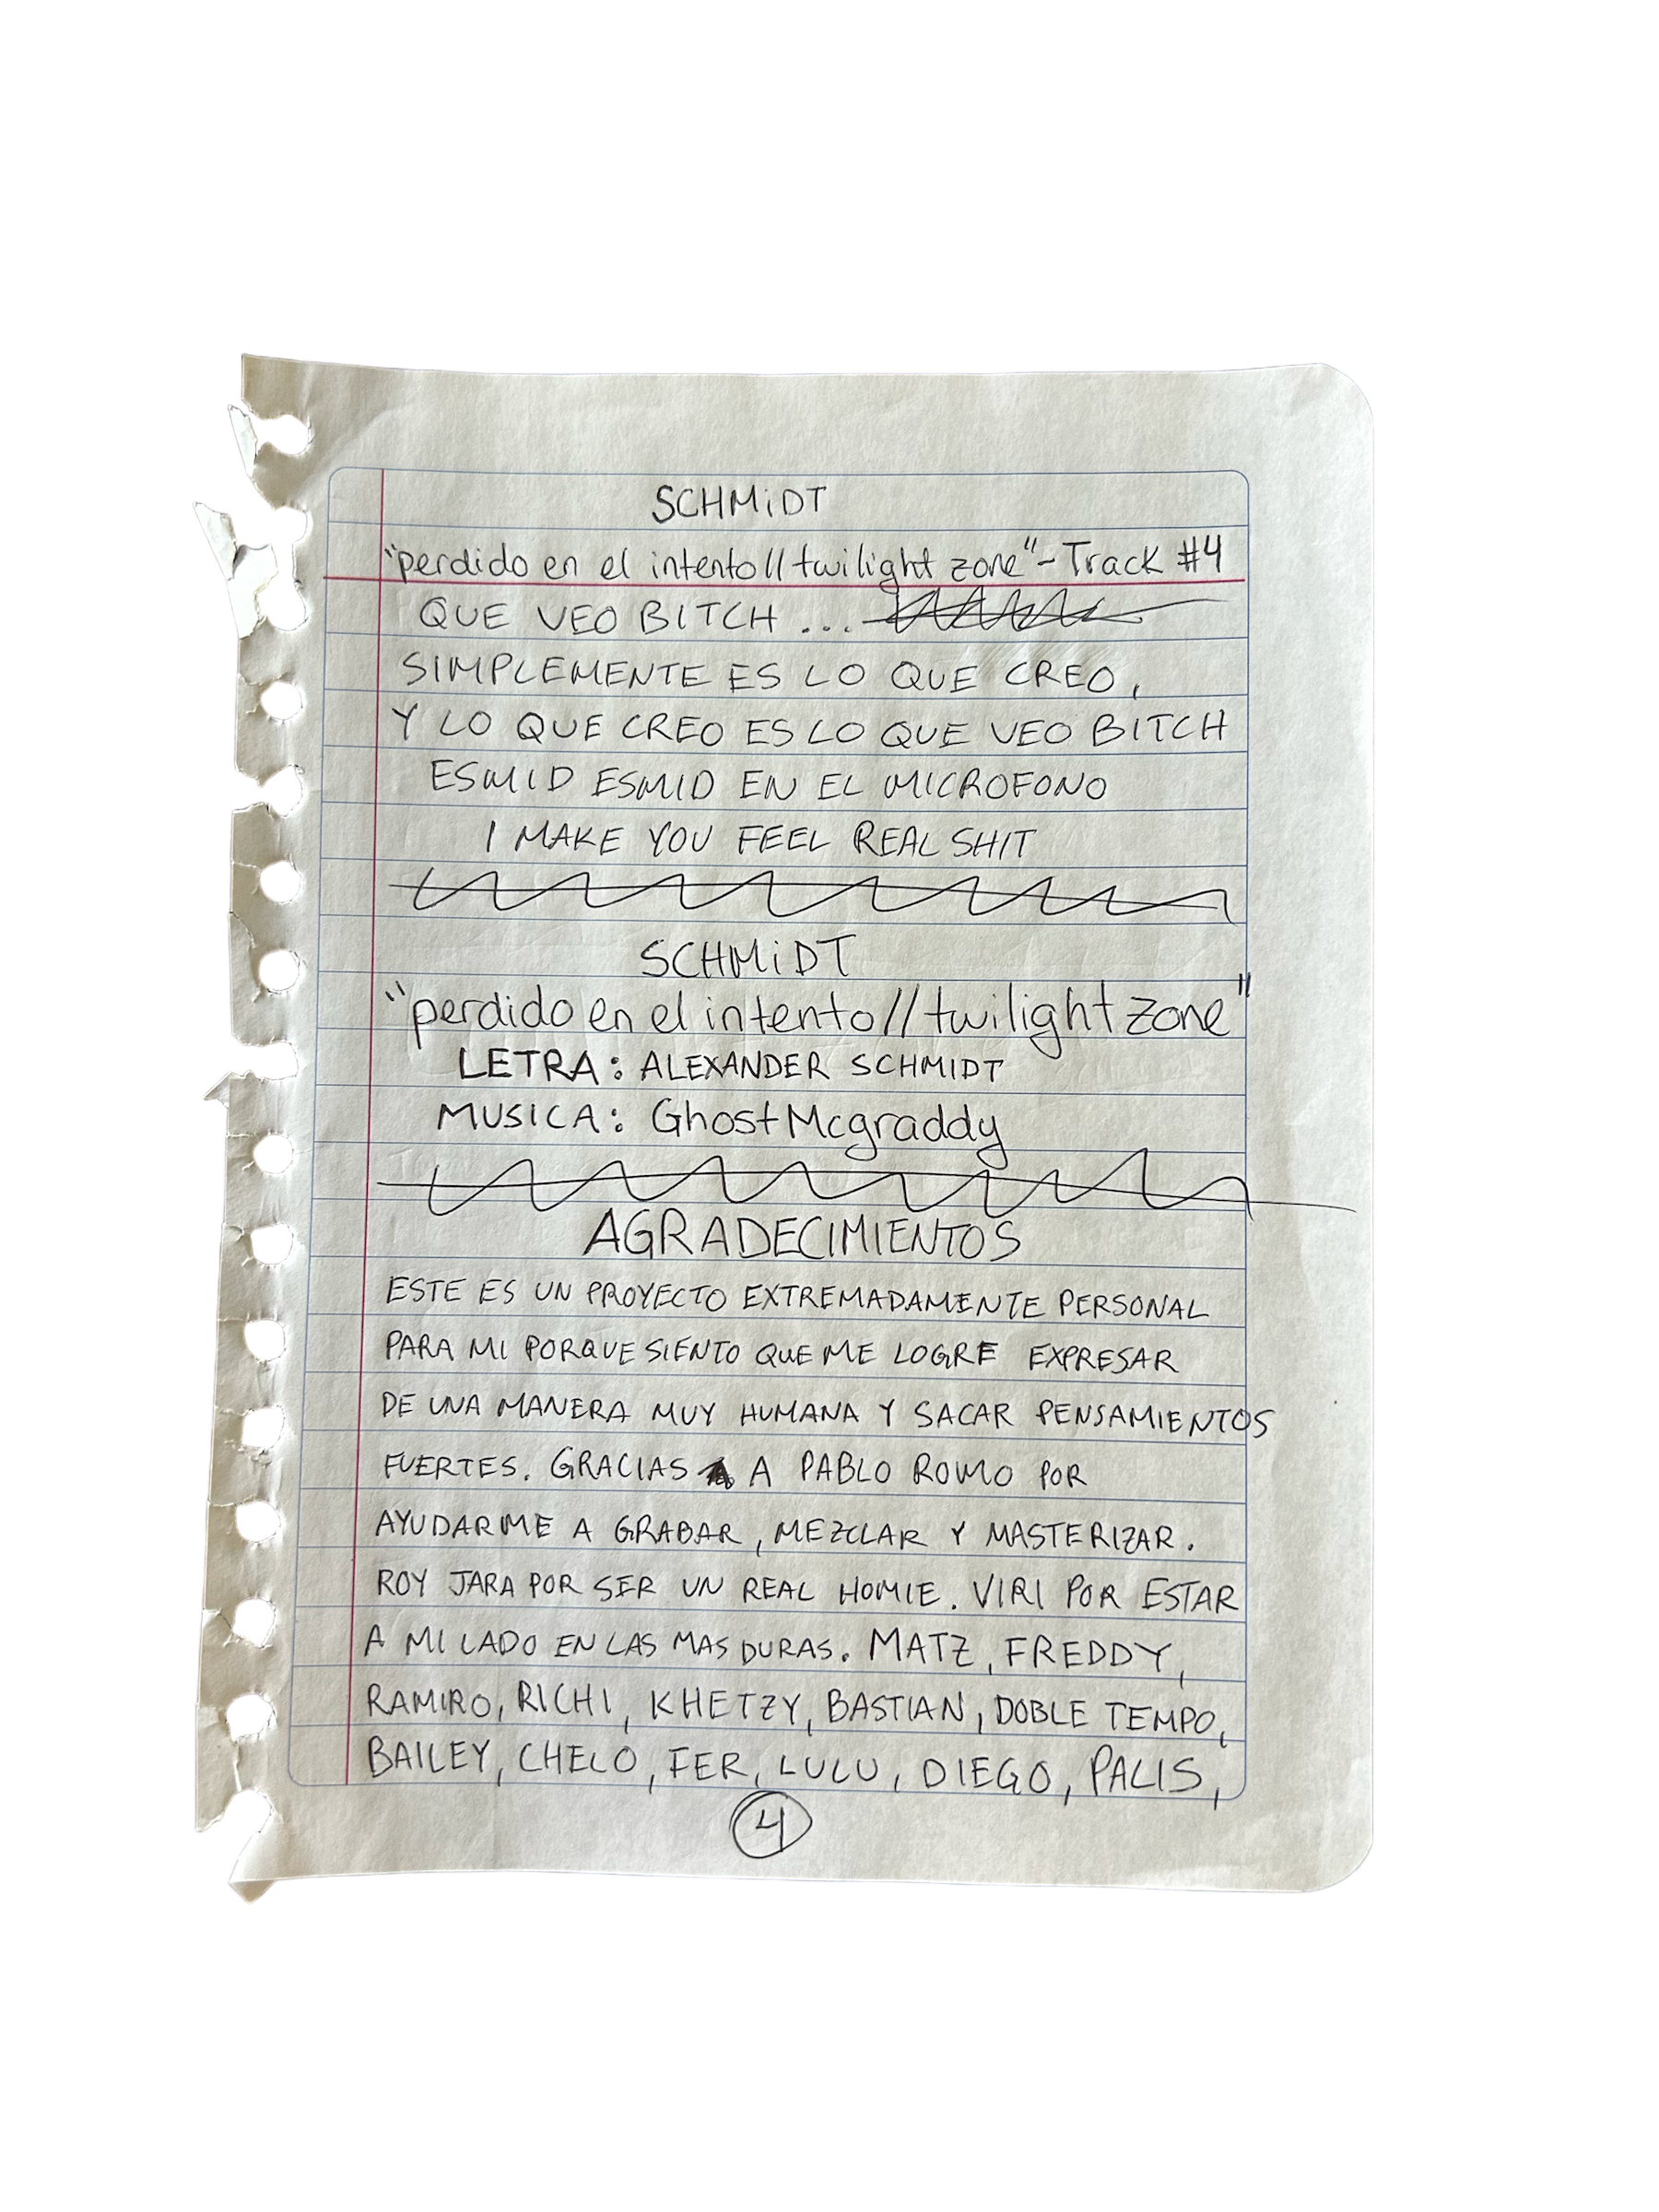 SCHMiDT
"perdido en el intento//twilight zone"-Track #4
QUE VEO BITCH ...
SIMPLEMENTE ES LO QUE CREO,
Y LO QUE CREO ES LO QUE VEO BITCH
ESMID ESMID EN EL MICROFONO
I MAKE YOU FEEL REAL SHIT
SCHMiDT
"perdido en el intento//twilight zone"
LETRA: ALEXANDER SCHMIDT
MUSICA: GhostMcgraddy
AGRADECIMIENTOS
ESTE ES UN PROYECTO EXTREMADAMENTE PERSONAL
PARA MI PORQUE SIENTO QUE ME LOGRE EXPRESAR
DE UNA MANERA MUY HUMANA Y SACAR PENSAMIENTOS
FUERTES. GRACIAS A PABLO ROMO POR
AYUDARME A GRABAR, MEZCLAR Y MASTERIZAR.
ROY JARA POR SER UN REAL HOMIE. VIRI POR ESTAR
A MI LADO EN LAS MAS DURAS. MATZ, FREDDY,
RAMIRO, RICHI, KHETZY, BASTIAN, DOBLE TEMPO,
BAILEY, CHELO, FER, LULU, DIEGO, PALIS,
4